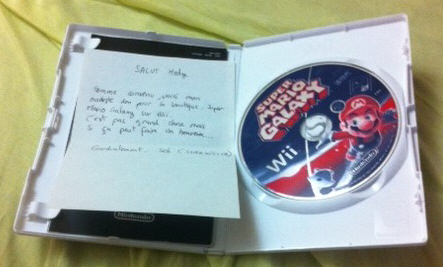 SALUT Hedg
Comme convenu, voici mon
modeste don pour la boutique. Super
Mario Galaxy sur Wii.
C'est pas grand chose mais
si ça peut faire un heureux...
Cordialement. Seb
Nintendo
SUPER
MARIO
GALAXY
Wii